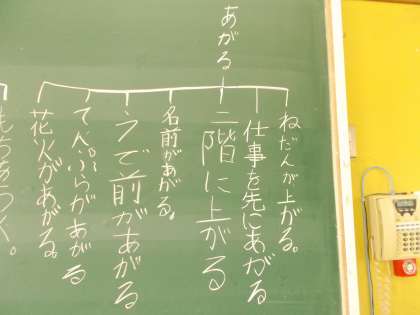 あがる
ねだんが上がる。
仕事を先にあがる
二階に上がる
名前があがる。
うで前があがる
てんぷらがあがる
花火があがる。